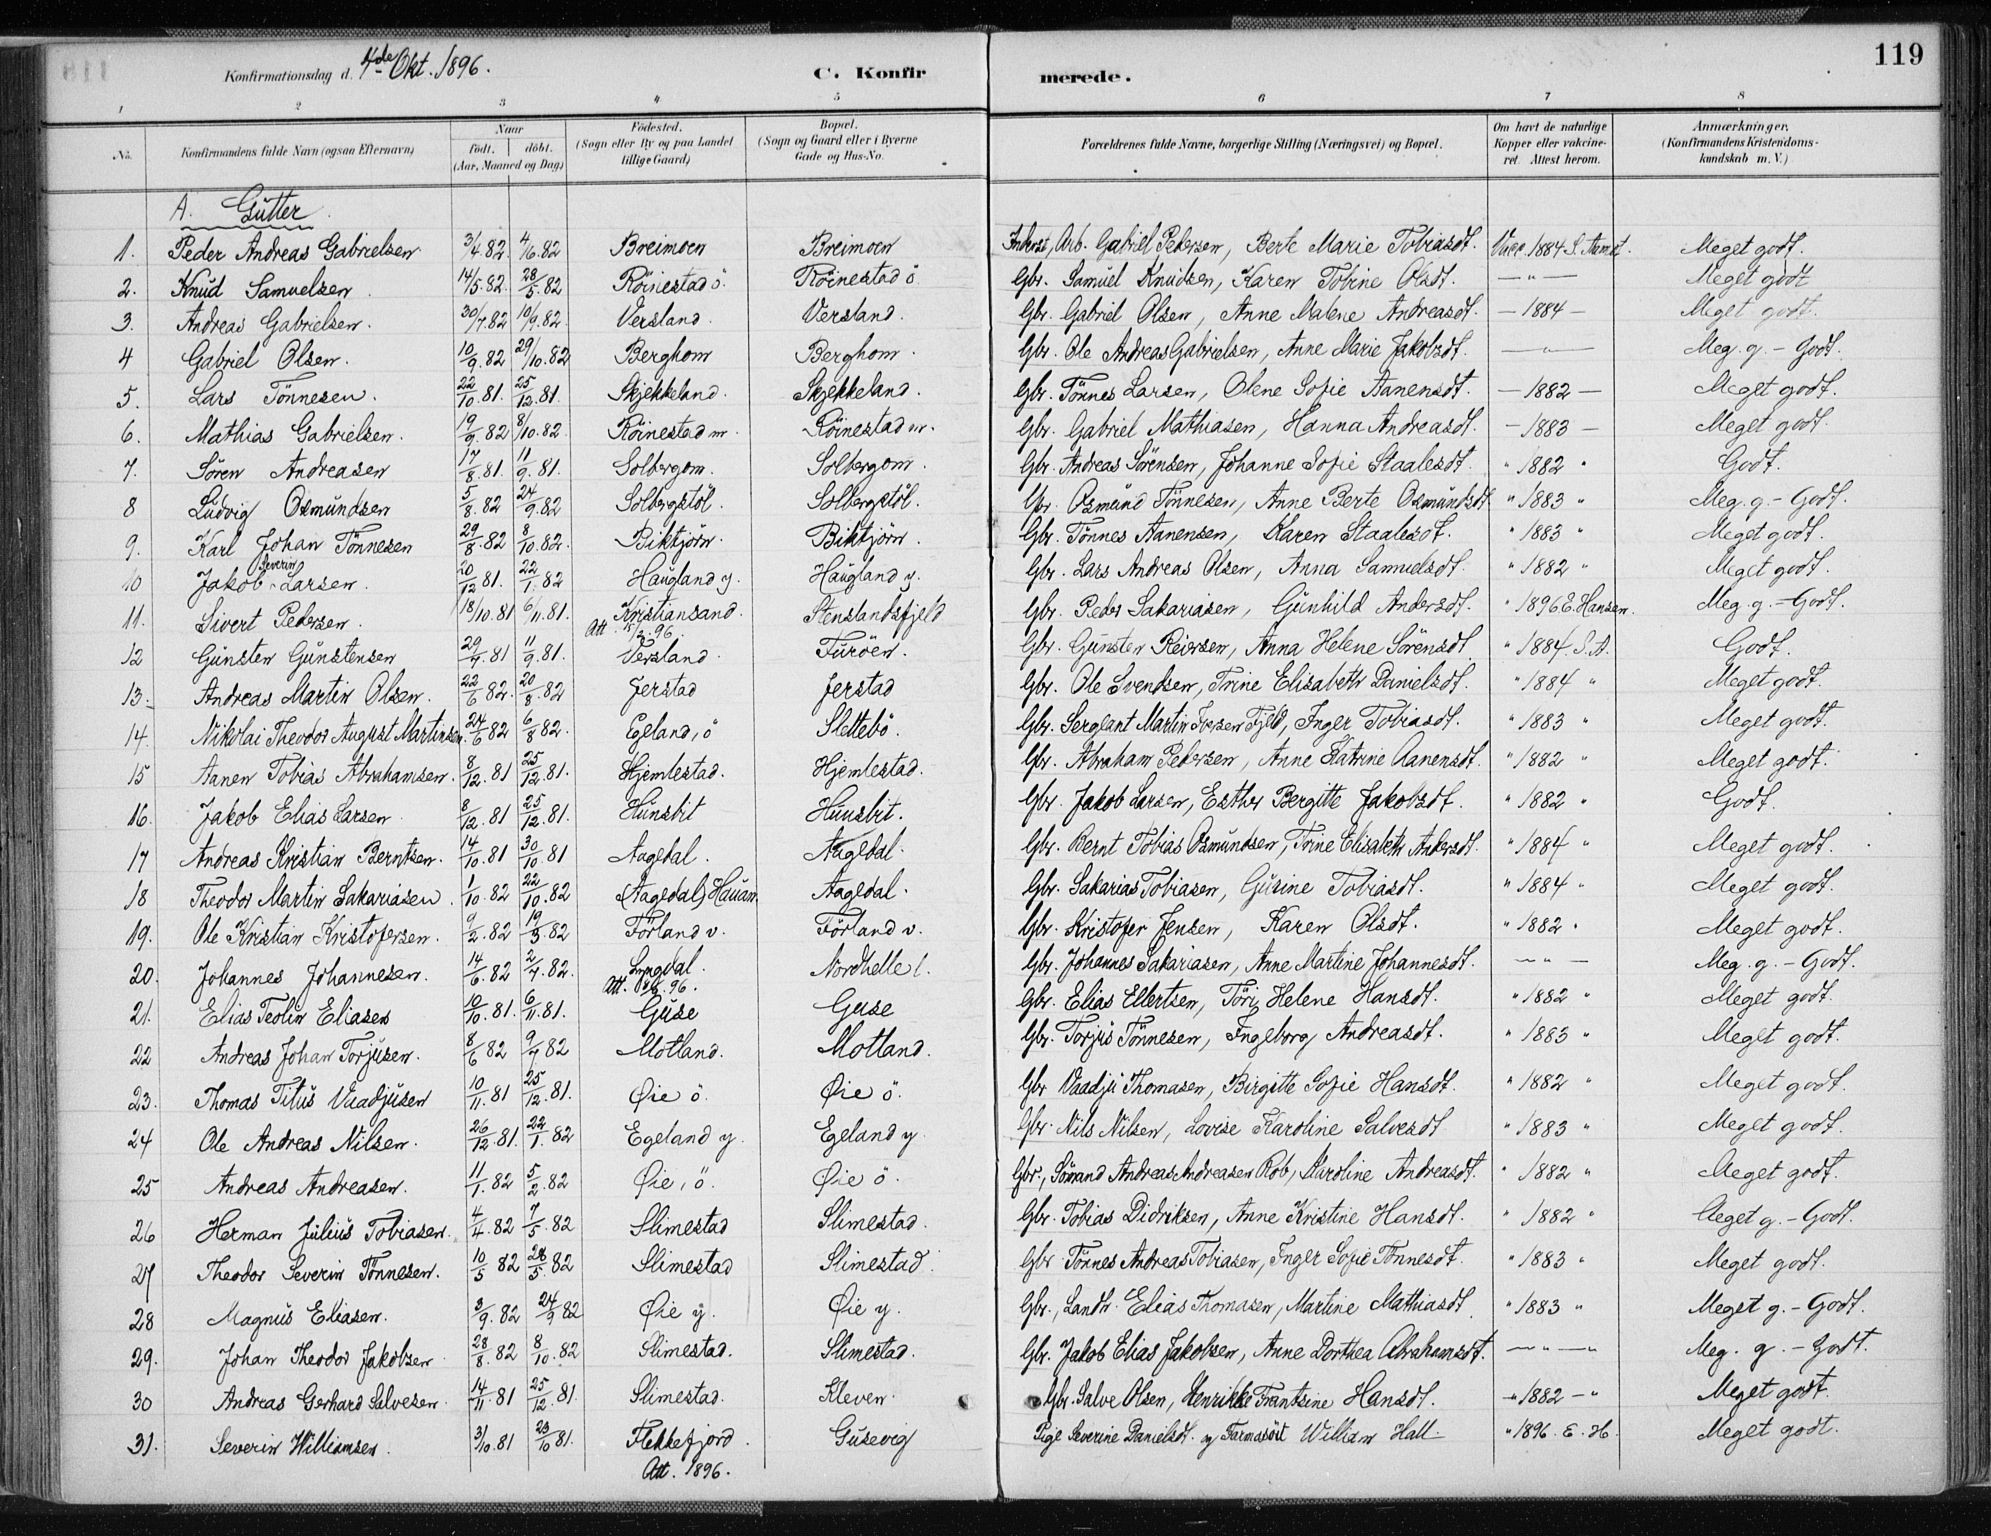 119
Konfirmationsdag d. 4de Okt. 1896. C. Konfirmerede.
1 2 3 4 5 6 7 8
No. Konfirmandens fulde Navn (ogsaa Efternavn) Naar født. døbt. (Aar, Maaned og Dag) Fødested. (Sogn eller By og paa Landet tillige Gaard) Bopæl. (Sogn og Gaard eller i Byerne Gade og Hus-No. Forældrenes fulde Navne, borgerlige Stilling (Næringsvei) og Bopæl. Om havt de naturlige Kopper eller vakcineret. Attest herom. Anmærkninger. (Konfirmandens Kristendomskundskab m. V.)
A. Gutter
1. Peder Andreas Gabrielsen 3/4.82. 4/6.82 Breimoen Breimoen Arb. Gabriel Pedersen, Berte Marie Tobiasdt. Vacc. 1884 S. Aamot. Meget godt.
2. Knud Samuelsen 14/5.82. 28/5.82 Röinestad ö. Röinestad ö Gbr. Samuel Knudsen, Karen Tobine Olsdt. — " — Meget godt
3. Andreas Gabrielsen. 30/7.82 10/9.82. Versland. Versland. Gbr. Gabriel Olsen, Anne Malene Andreasdt. — 1884 — Meget godt.
4 Gabriel Olsen. 10/9.82 29/10.82 Berghom Berghom. Gbr. Ole Andreas Gabrielsen, Anne Marie Jakobsdt. — " — Meg. g. – Godt.
5. Lars Tönnesen. 22/10.81. 25/12.81. Skjekkeland. Skjekkeland. Gbr. Tönnes Larsen, Olene Sofie Aanensdt. — 1882 — Meget godt.
6. Mathias Gabrielsen. 19/9.82 8/10.82. Röinestad m. Röinestad m. Gbr. Gabriel Mathiasen, Hanna Andreasdt. — 1883 — Meget godt.
7. Sören Andreasen 17/8.81. 11/9.81. Solbergom. Solbergom. Gbr. Andreas Sörensen, Johanne Sofie Staalesdt. " 1882 " Godt.
8 Ludvig Osmundsen 5/8.82 24/9.82 Solbergstöl. Solbergstöl. Gbr. Osmund Tönnesen, Anne Berte Osmundsdt. " 1883 " Meg. g. – Godt.
9. Karl Johan Tönnesen 29/8.82 8/10.82. Biktjörn. Biktjörn. Gbr. Tönnes Aanensen, Karen Staalesdt. " 1883 " Meget godt.
10 Jakob Severin Larsen. 20/12.81. 22/1.82 Haugland y. Haugland y. Gbr. Lars Andreas Olsen, Anna Samuelsdt. " 1882 " Meget godt.
11. Sivert Pedersen. 18/10.81 6/11.81. Kristiansand. Stenslandsfjeld Gbr. Peder Sakariasen, Gunhild Andersdt. " 1896 E. Hansen. Meg. g. – Godt.
Att
12 Gunsten Gunstensen 29/7.81 11/9.81. Versland. Furöen. Gbr. Gunsten Reiersen, Anna Helene Sörensdt. " 1884. S. A. Godt.
13. Andreas Martin Olsen. 22/6.82. 20/8.82 Jerstad Jerstad Gbr. Ole Svendsen, Trine Elisabeth Danielsdt. " 1884 " Meget godt.
14. Nikolai Theodor August Martinsen. 24/6 82 6/8 82. Egeland, ö Slettebö. Gbr. Sergeant Martin Iversen Fjeld, Inger Tobiasdt. " 1883 " Meget godt.
15 Aanen Tobias Abrahamsen. 8/12.81 25/12.81. Hjemlestad. Hjemlestad. Gbr. Abraham Pedersen, Anne Katrine Aanensdt. " 1882 " Meget godt.
16. Jakob Elias Larsen 8/12.81 25/12.81. Hunsbit Hunsbit. Gbr. Jakob Larsen, Esther Bergitte Jakobsdt. " 1882 " Godt.
17 Andreas Kristian Berntsen. 14/10.81 30/10.81 Aagedal. Aagedal. Gbr. Bernt Tobias Osmundsen, Trine Elisabeth Andersdt. " 1884 " Meget godt.
18 Theodor Martin Sakariasen. 1/10.82 22/10.82 (Aagedal) Hauan. Aagedal. Gbr. Sakarias Tobiasen, Gusine Tobiasdt. " 1884 " Meget godt.
19. Ole Kristian Kristofersen. 9/2.82 19/3 82 Förland v. Förland v. Gbr. Kristofer Jensen, Karen Olsdt. " 1882 " Meget godt.
20. Johannes Johannesen. 14/6.82 2/7.82. Lyngdal. Nordhelle l. Gbr. Johannes Sakariasen, Anne Martine Johannesdt. — " — Meg. g. – Godt.
Att.
21. Elias Teolin Eliasen 10/10.81. 6/11.81. Guse Guse Gbr. Elias Ellertsen, Töri Helene Hansdt. " 1882 " Meget godt.
22 Andreas Johan Torjusen. 8/6 82 9/7 82 Motland. Motland. Gbr. Torjus Tönnesen, Ingeborg Andreasdt. " 1883 " Meget godt.
23. Thomas Titus Vaadjusen 10/11.81 25/12.81. Øie ö Øie ö. Gbr Vaadju Thomasen, Birgitte Sofie Hansdt. " 1882 " Meget godt.
24 Ole Andreas Nilsen. 26/12.81. 22/1.82 Egeland y. Egeland y. Gbr. Nils Nilsen, Lovise Karoline Salvesdt " 1883 " Meget godt.
25 Andreas Andreasen. 11/1.82 5/2.82 Øie, ö. Øie ö. Gbr., Sörand Andreas Andreasen Rob, Karoline Andreasdt. " 1882 " Meget godt.
26 Herman Julius Tobiasen. 4/4.82 7/5.82 Slimestad Slimestad. Gbr. Tobias Didriksen, Anne Kristine Hansdt. " 1882 " Meget g. – Godt.
27 Theodor Severin Tönnesen. 10/5 82 28/5.82 Slimestad Slimestad. Gbr Tönnes Andreas Tobiasen, Inger Sofie Tönnesdt. " 1883 " Meget godt.
28 Magnus Eliasen. 3/9.82 24/9 82 Øie y. Øie y. Gbr., Landh. Elias Thomasen, Martine Mathiasdt " 1883 " Meget g. – Godt.
29. Johan Theodor Jakobsen 28/8.82 8/10.82 Slimestad. Slimestad. Gbr. Jakob Elias Jakobsen, Anne Dorthea Abrahamsdt. — " — " Meg. g. – Godt.
30 Andreas Gerhard Salvesen 14/11.81 25/12.81. Slimestad. Kleven Gbr. Salve Olsen, Henrikke Frantsine Hansdt. — 1882 — " Meget godt.
31. Severin Williamsen 3/10.81 23/10 81. Flekkefjord. Gusevig Pige Severine Danielsdt. og Farmasöit William Hall " 1896. E. H. Meget godt.
Att. 1896.